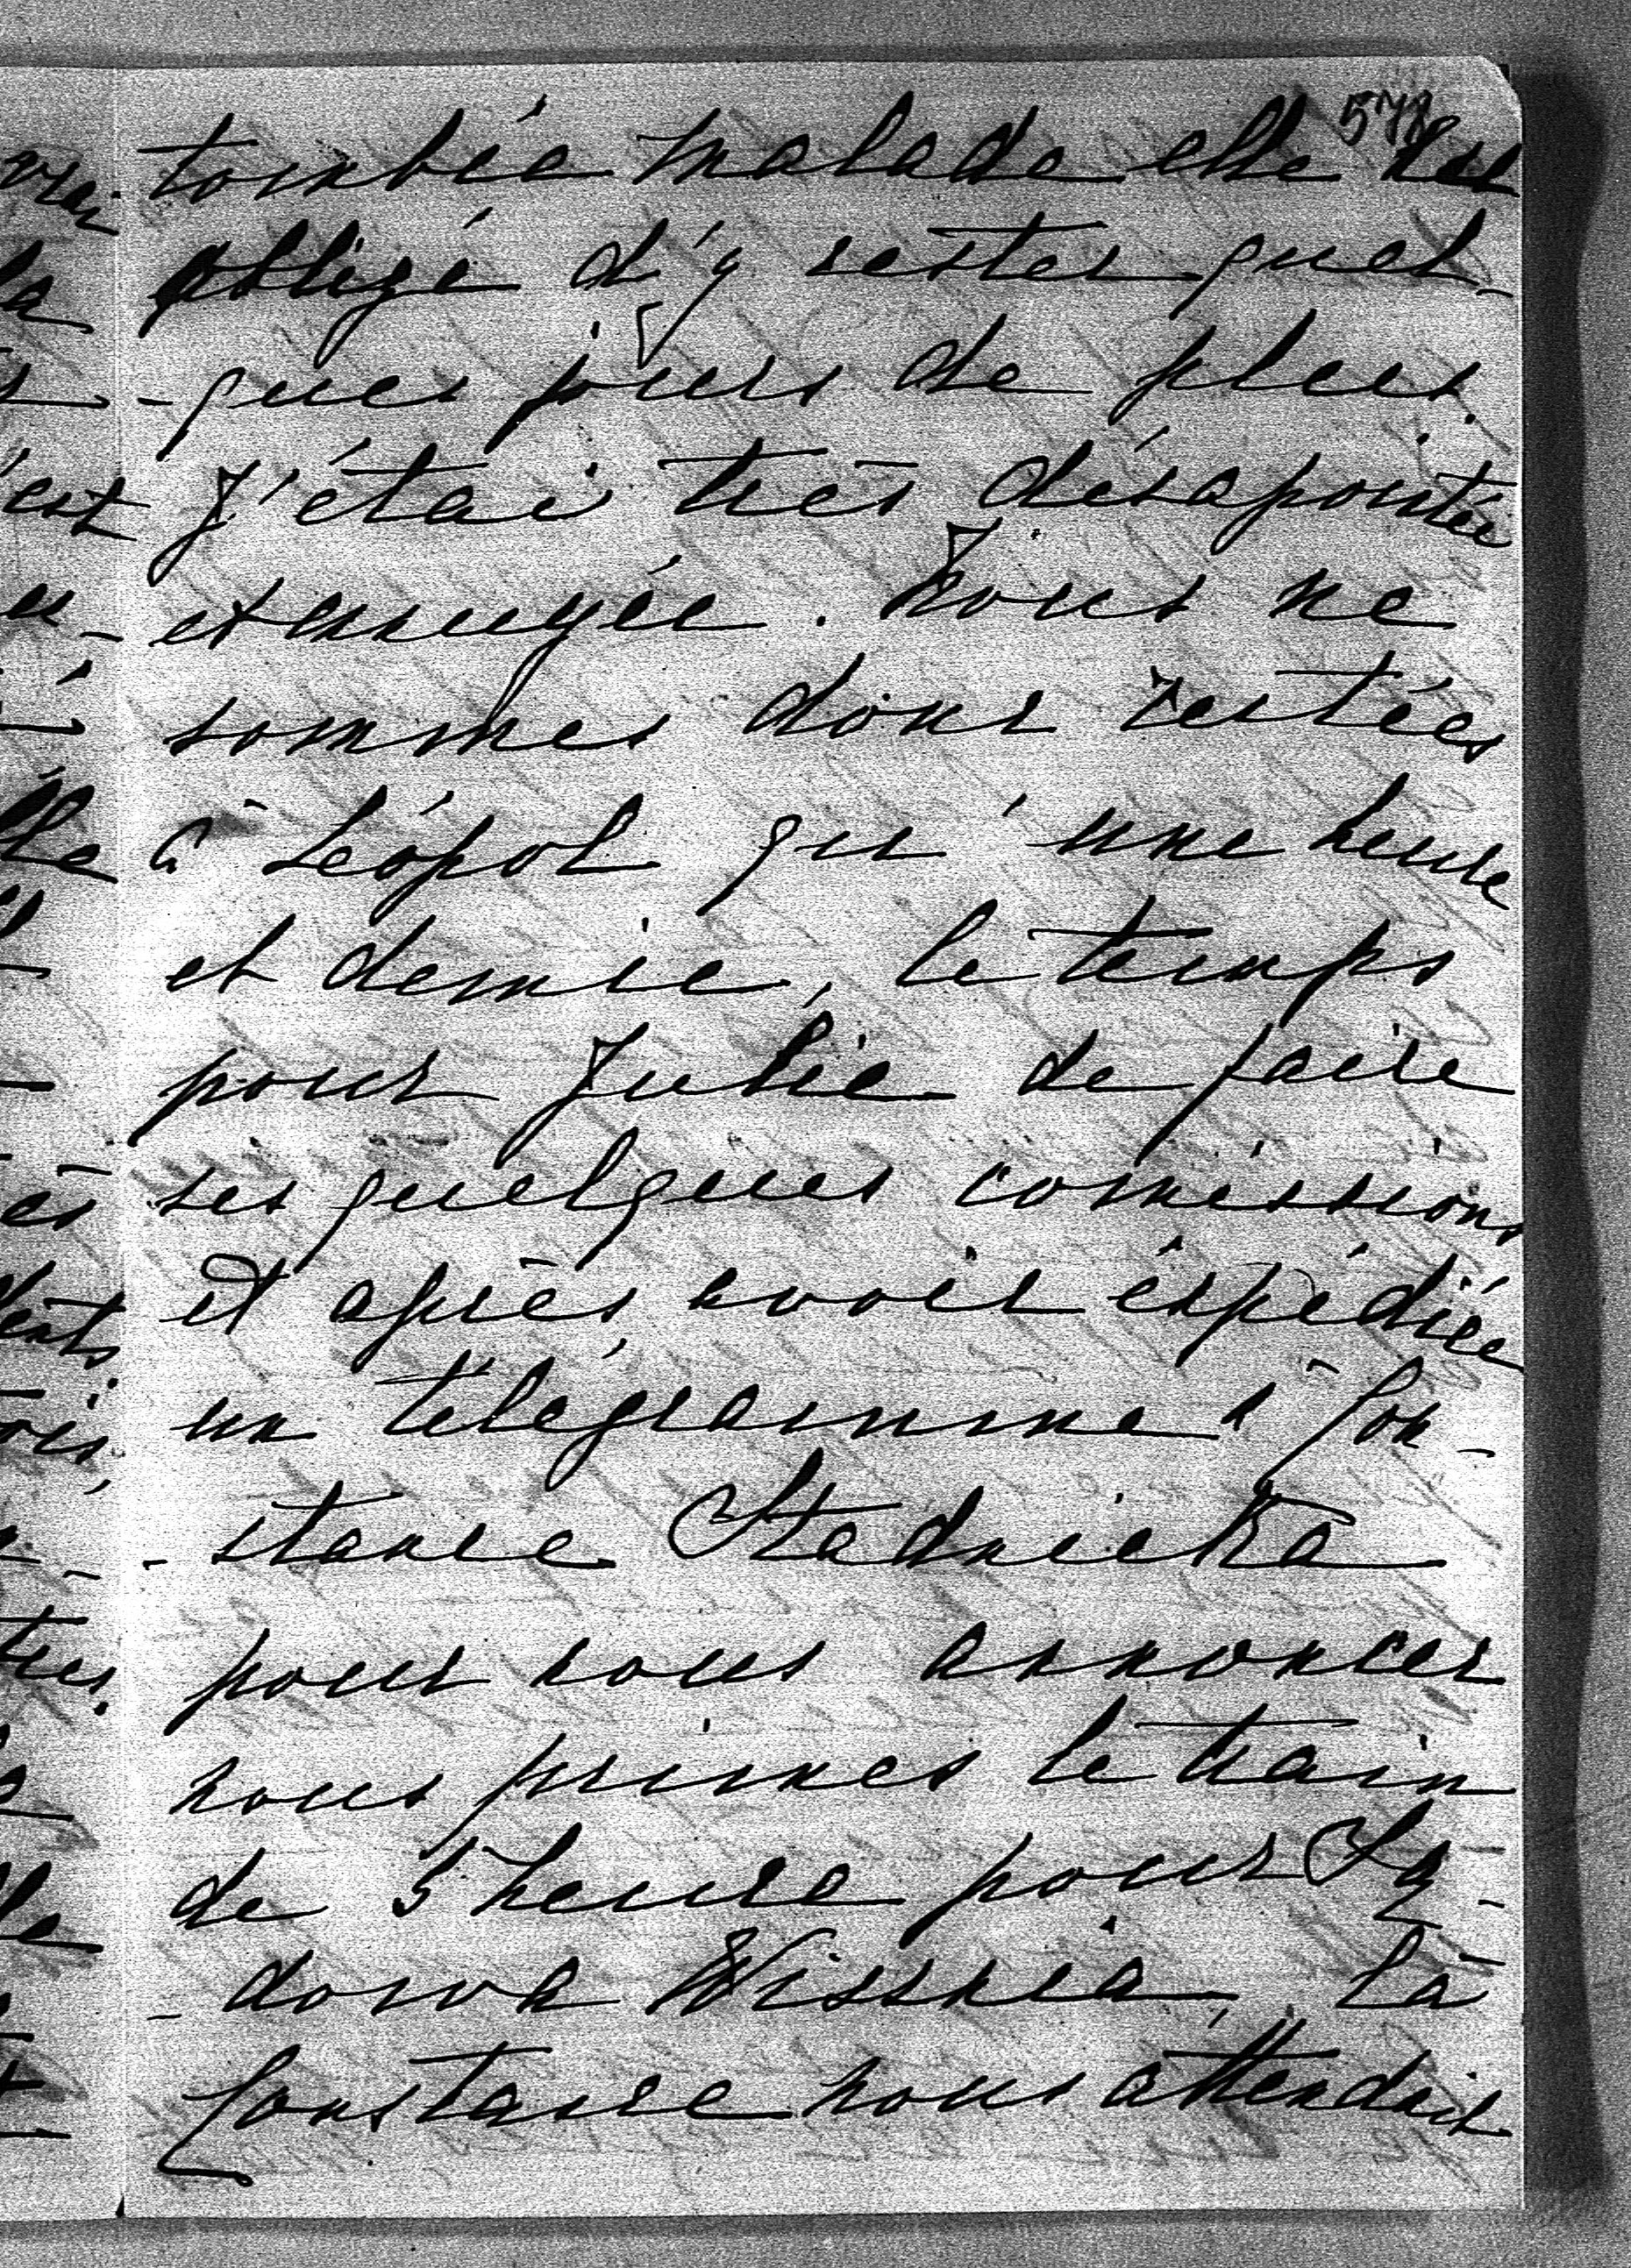 578
tombée malade elle est
obligé d'y rester quel-
-ques jours de plus.
J'étai très désapointée
et ennuyée. Nous ne
sommes donc restées
à Léopol qu'une heure
et demie, le temps
pour Julie de faire
ses quelques comissions
et après avoir éxpédiée
un télégramme à Con-
-stance Stadnicka
pour nous annoncer
nous primes le train
de 5 heure pour Są-
-dowa Wisznia, là
Constance nous attendait